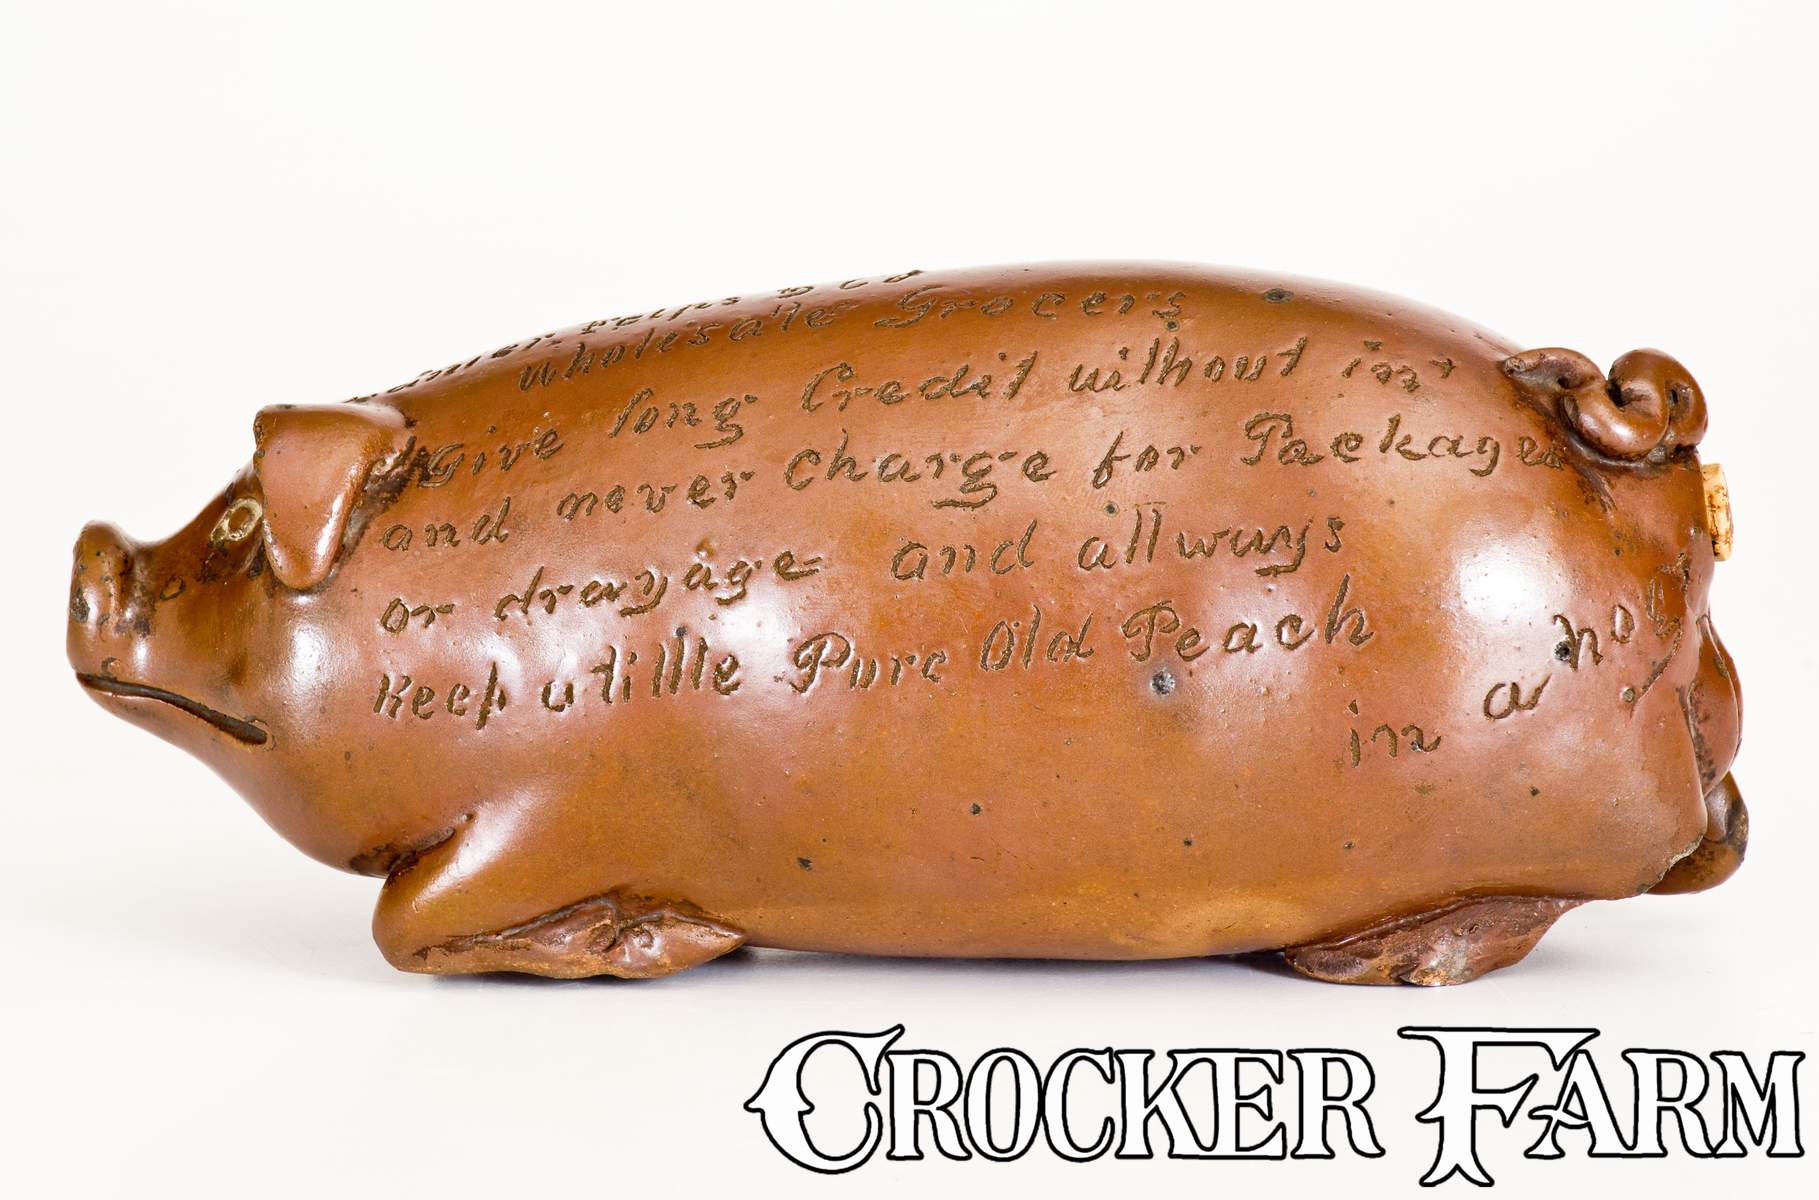 & Co
Wholesale Grocers
Give long Credit without int
and never Charge for Packages
or drayage and allways
Keep a little Pure Old Peach
in a hog
CROCKER FARM